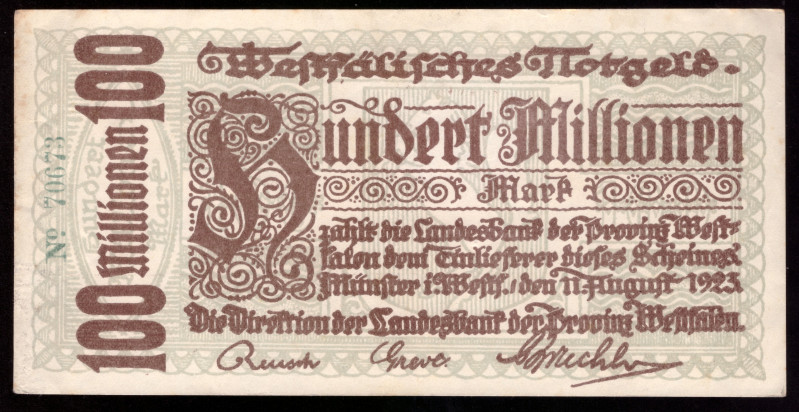 Westfälisches Notgeld.
Hundert Millionen
Mark
zahlt die Landesbank der Provinz West-
falen dem Einlieferer dieses Scheines.
Münster i. Westf., den 11. August 1923.
Die Direktion der Landesbank der Provinz Westfalen.
Reusch Greve.
100 Millionen 100
Hundert
Mark
No 70673